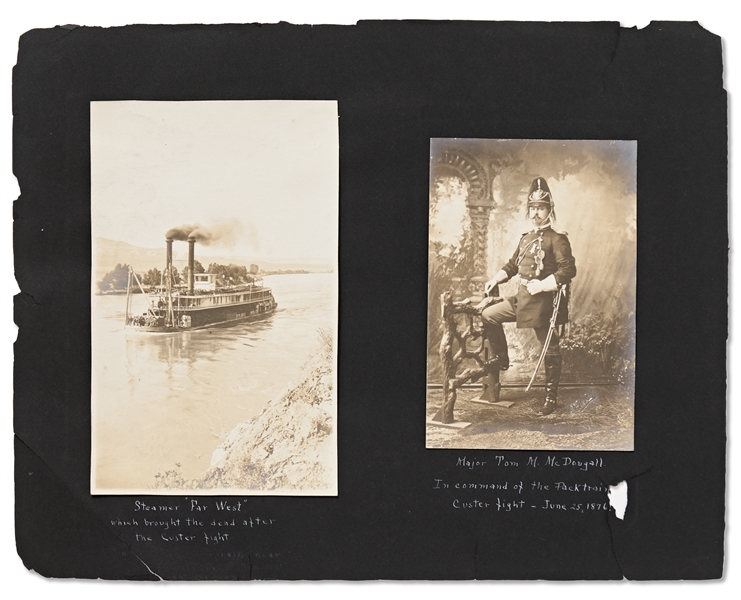 Steamer "Far West"
which brought the dead after
the Custer fight
Major Tom M. McDougall.
In command of the Packtrain
Custer fight - June 25, 1876